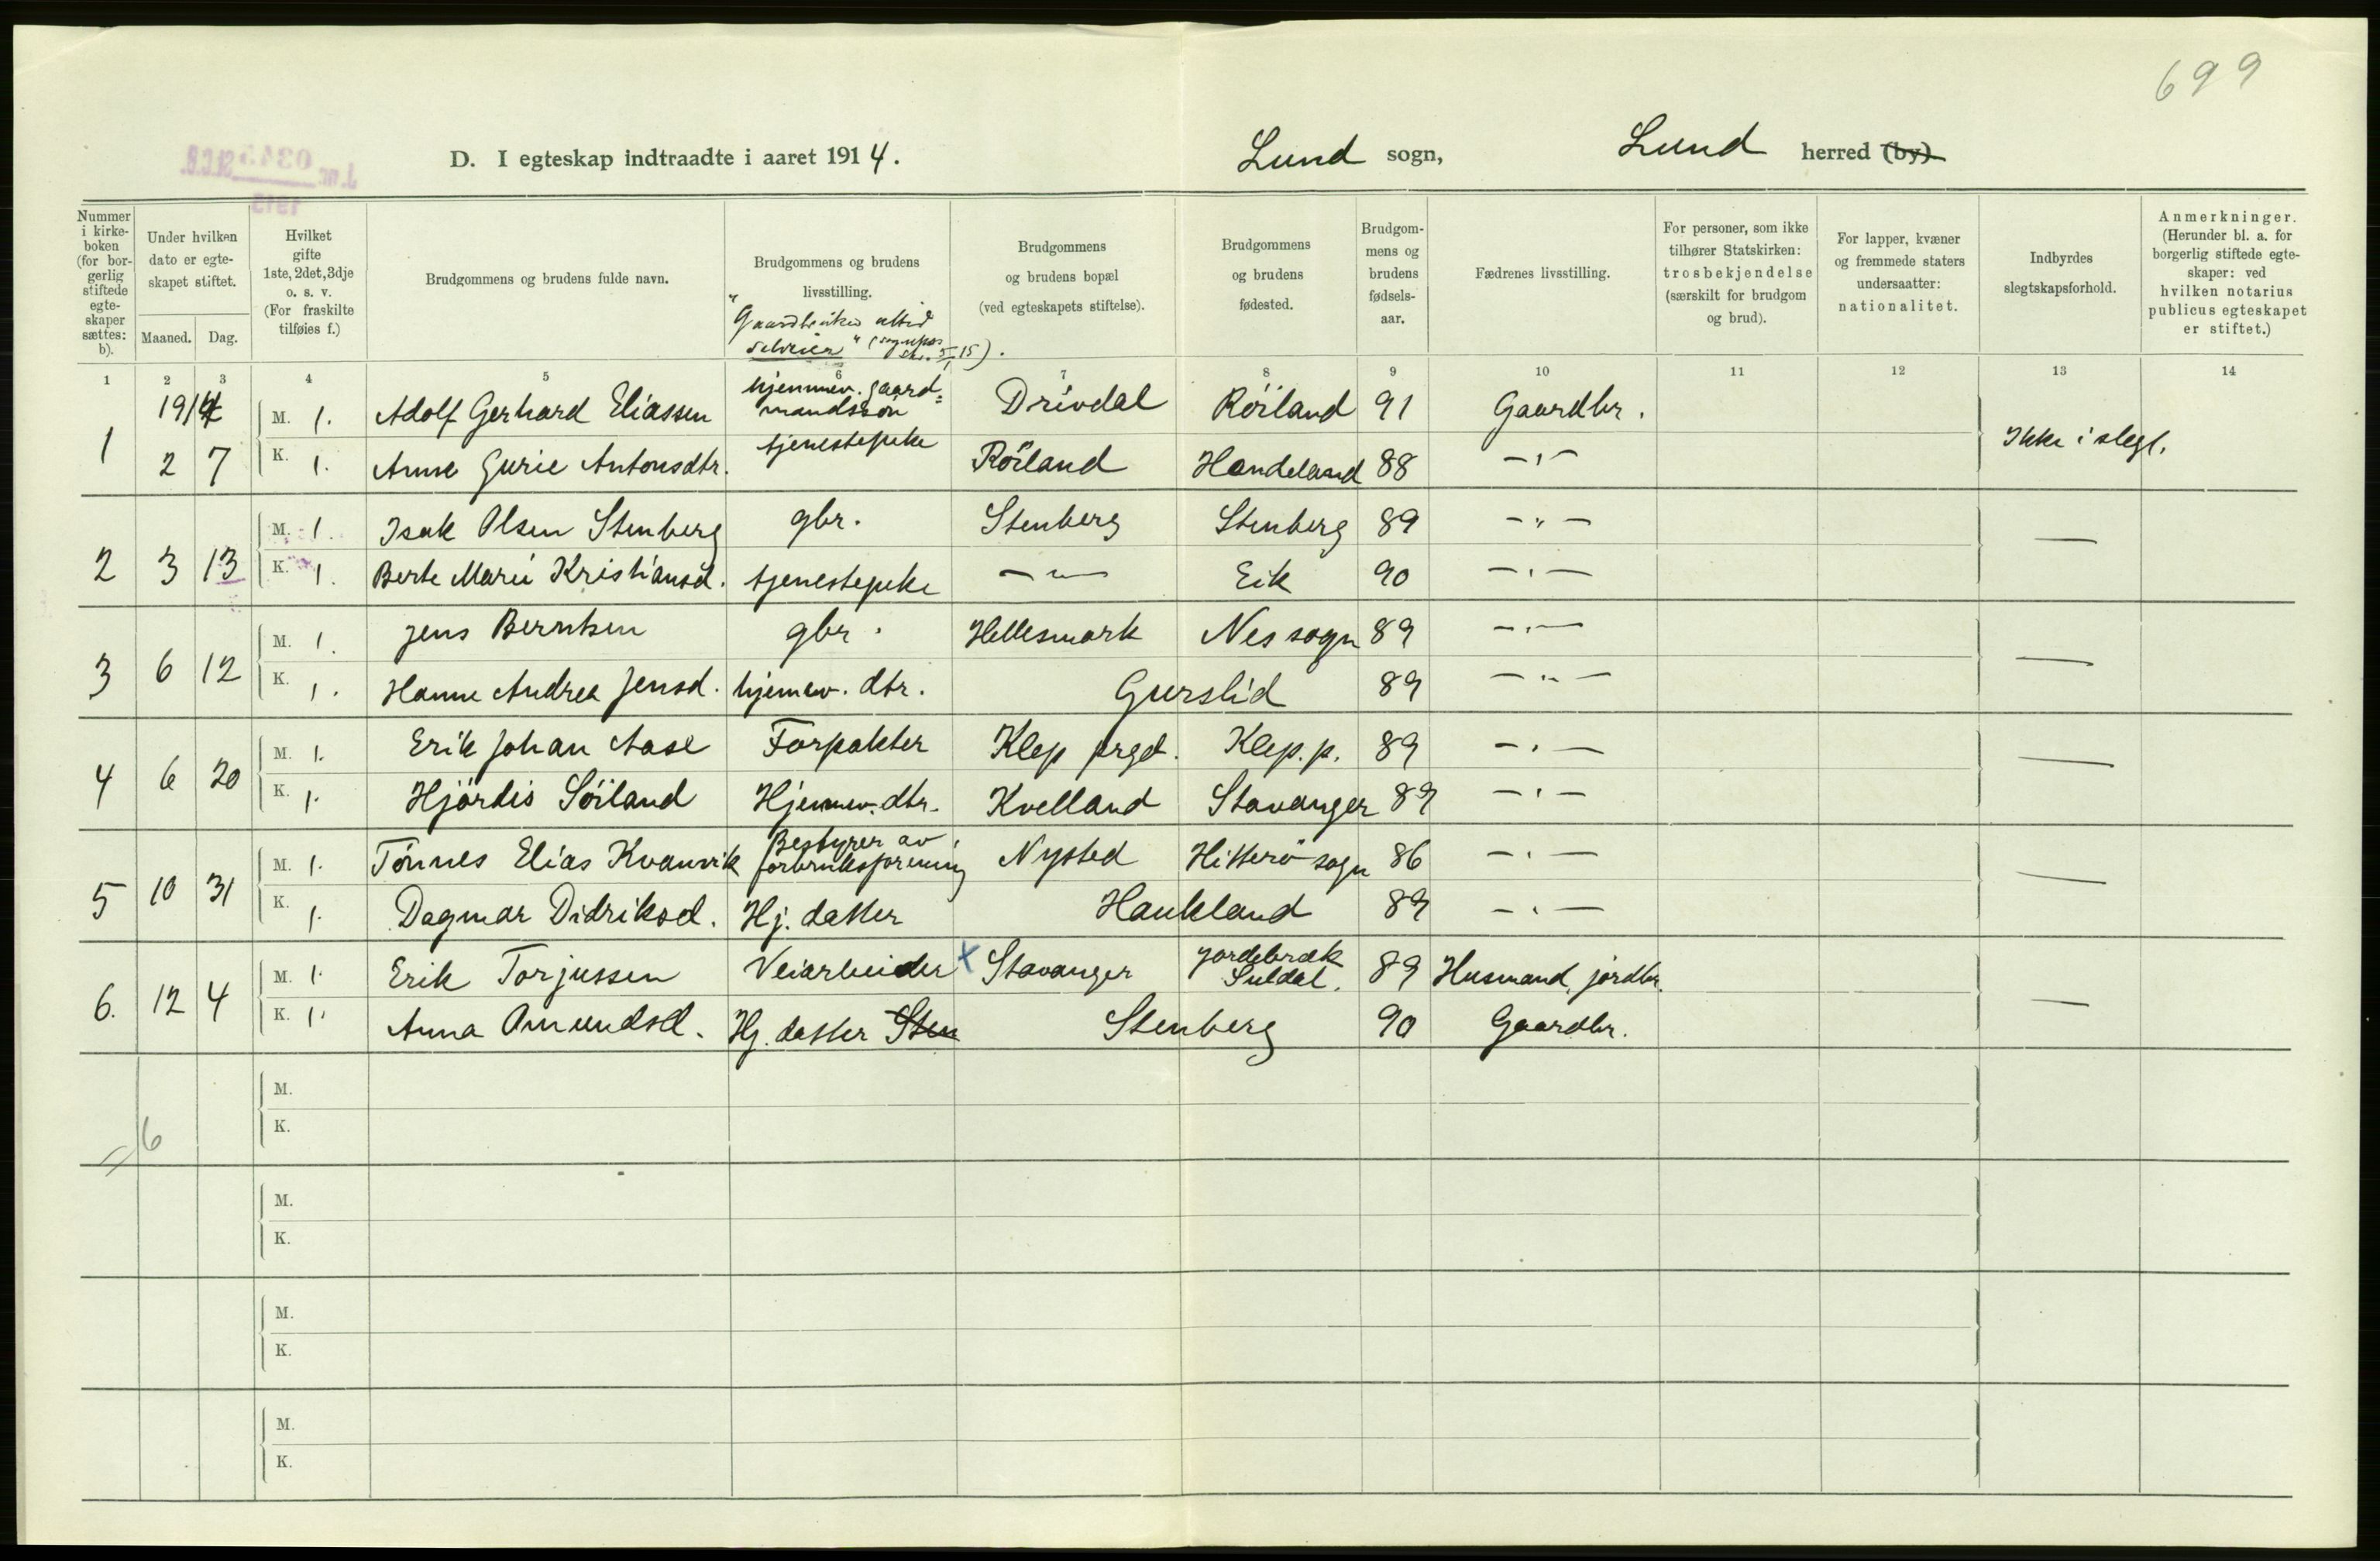 699
D. I egteskap indtraadte i aaret 1914. Lund sogn, Lund herred (by)
Nummer i kirkeboken (for borgerlig stiftede egteskaper sættes: b).
Under hvilken dato er egteskapet stiftet.
Maaned. Dag.
Hvilket gifte 1ste, 2det, 3dje o. s. v. (For fraskilte tilføies f.)
Brudgommens og brudens fulde navn.
Brudgommens og brudens livsstilling.
"Gaardbruker altid
selveier"
Brudgommens og brudens bopæl (ved egteskapets stiftelse).
Brudgommens og brudens fødested.
Brudgommens og brudens fødselsaar.
Fædrenes livsstilling.
For personer, som ikke tilhører Statskirken: trosbekjendelse (særskilt for brudgom og brud).
For lapper, kvæner og fremmede staters undersaatter: nationalitet.
Indbyrdes slegtskapsforhold.
Anmerkninger. (Herunder bl. a. for borgerlig stiftede egteskaper: ved hvilken notarius publicus egteskapet er stiftet.)
1 2 3 4 5 6 7 8 9 10 11 12 13 14
1914
1 2 7 M. 1. Adolf Gerhard Eliassen hjemmev. gaardmandssøn Drivdal Röiland 91 Gaardbr.
K. 1. Anne Gurie Antonsdtr. tjenestepike Röiland Handeland 88 —"— Ikke i slegt.
2 3 13 M. 1. Isak Olsen Stenberg gbr. Stenberg Stenberg 89 —"—
K. 1. Berte Marie Kristiansd. tjenestepike —"— Eik 90 —"— —
3 6 12 M. 1. Jens Berntsen gbr. Hellesmark Nes sogn 89 —"—
K. 1. Hanne Andrea Jensd. hjemmev. dtr. Gurslid 89 —"— —
4 6 20 M. 1. Erik Johan Aase Forpakter Klep prgd. Klep. p. 89 —"—
K. 1. Hjördis Söiland Hjemmev. dtr. Kvelland Stavanger 89 —"— —
5 10 31 M. 1. Tönnes Elias Kvanvik Bestyrer av forbruksforening Nysted Hitterö sogn 86 —"—
K. 1. Dagmar Didriksd. Hj. datter Haukland 89 —"— —
6. 12 4 M. 1. Erik Torjussen Veiarbeider x Stavanger Jordebræk Suldal. 89 Husmand, jordbr.
K. 1. Anna Omundsd. Hj. datter Sten Stenberg 90 Gaardbr. —
M.
K.
6
M.
K.
M.
K.
M.
K.